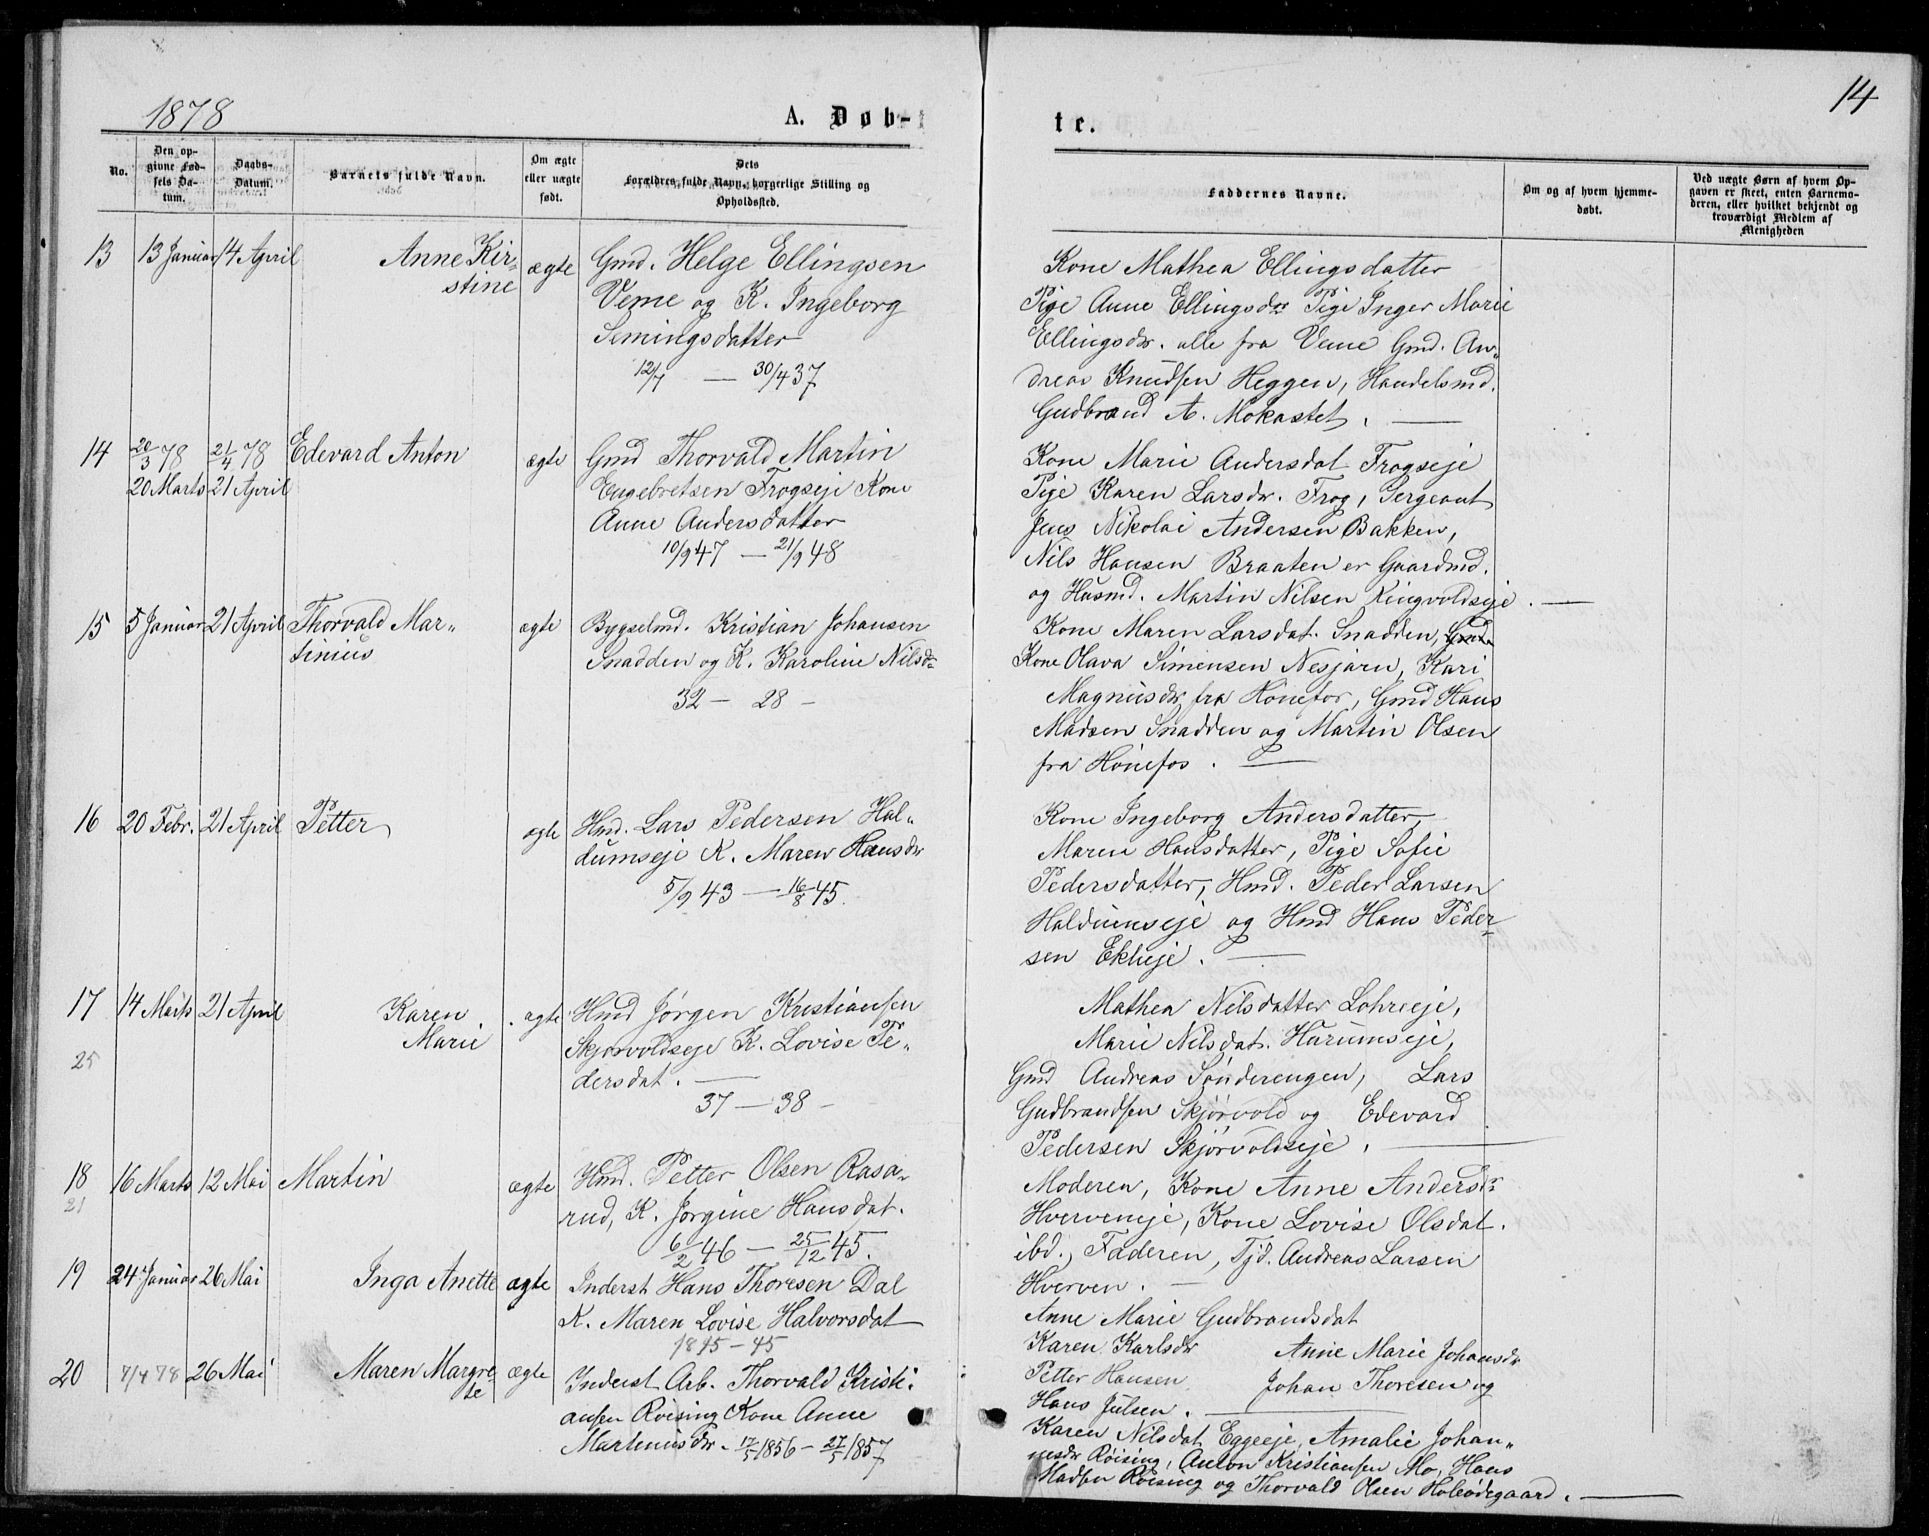 1878
14
A. Døb-
te.
No.
Den op-
givne Fød-
sels Da-
tum.
Daabs-
Datum.
Barnets fulde Navn.
Om ægte
eller uægte
født.
Dets
Forældres fulde Navn, borgerlige Stilling og
Opholdssted.
Faddernes Navne.
Om og af hvem hjemme-
døbt.
Ved uægte Børn af hvem Op-
gaven er skeet, enten Barnemo-
deren, eller hvilket bekjendt og
troværdigt Medlem af
Menigheden
13 13 Januar 14 April Anne Kir-
stine
ægte
Gmd. Helge Ellingsen
Veme og K. Ingeborg
Semingsdatter
12/7 — 30/4 37
Kone Mathea Ellingsdatter
Pige Anne Ellingsdr Pige Inger Marie
Ellingsdr. alle fra Veme Gmd. An-
dreas Knudsen Heggen, Handelsmd.
Gudbrand A. Mokastet. —
14 20/3 78 21/4 78 Edevard Anton
20 Marts 21 April
ægte
Gmd Thorvald Martin
Engebretsen Frogseje Kone
Anne Andersdatter
10/9 47 — 21/9 48
Kone Marie Andersdat Frogseje
Pige Karen Larsdr. Frog, Sergeant
Jens Nikolai Andersen Bakken,
Nils Hansen Braaten er Gaardmd.
og Husmd. Martin Nilsen Ringvoldseje. —
15 5 Januar 21 April Thorvald Mar-
tinius
ægte
Bygselmd. Kristian Johansen
Snadden og K. Karoline Nilsdr
32 — 28 —
Kone Maren Larsdat. Snadden, Gmd.
Kone Olava Simensen Nesjarn, Kari
Magnusdr fra Hønefos, Gmd Hans
Madsen Snadden og Martin Olsen
fra Hønefos. —
16 20 Febr. 21 April Petter
ægte
Hmd. Lars Pedersen Hal-
dumseje K. Maren Hansdr
5/9 43 — 16/8 45.
Kone Ingeborg Andersdatter,
Maren Hansdatter, Pige Sofie
Pedersdatter, Hmd. Peder Larsen
Haldumseje og Hmd Hans Peder-
sen Ekheje. —
17 14 Marts 21 April Karen
Marie
25
ægte
Hmd Jørgen Kristiansen
Skjørvoldseje K. Lovise Pe-
dersdat. —
37 — 38 —
Mathea Nilsdatter Lohreeje,
Marie Nilsdat. Harumseje,
Gmd Andreas Sønderengen, Lars
Gudbrandsen Skjørvold og Edevard
Pedersen Skjørvoldseje. —
18 16 Marts 12 Mai Martin
21
ægte
Hmd. Petter Olsen Rasa-
rud, K. Jørgine Hansdat.
6/2 46 — 25/12 45.
Moderen, Kone Anne Andersdr
Hverveneje, Kone Lovise Olsdat.
ibd., Faderen, Tjd. Andreas Larsen
Hverven. —
19 24 Januar 26 Mai Inga Anette ægte
Inderst Hans Thoresen Dal
K. Maren Lovise Halvorsdat
1845 — 45
Anne Marie Gudbrandsdat
Karen Karlsdr Anne Marie Johansdr
Petter Hansen Johan Thoresen og
Hans Julsen. —
20 7/4 78 26 Mai Maren Margre
te
ægte
Inderst Arb. Thorvald Kristi-
ansen Røising Kone Anne
Martinusdr. 17/5 1856 — 27/5 1857
Karen Nilsdat Eggeeje, Amalie Johan-
nesdr Røising, Anton Kristiansen Mo, Hans
Madsen Røising og Thorvald Olsen Holeødegaard. —